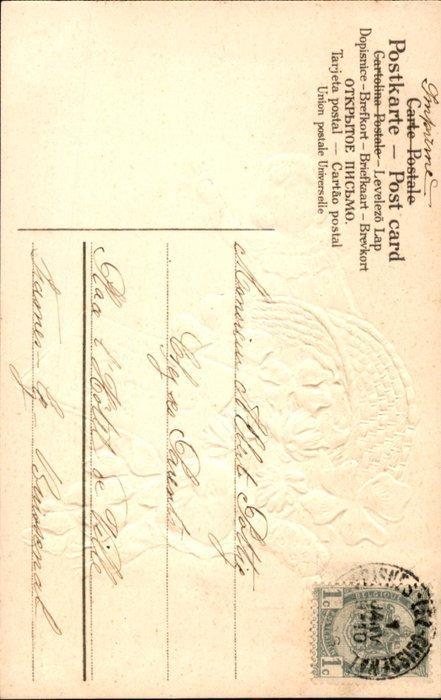 Imprimé
Carte Postale
Postkarte – Post card
Cartolina Postale – Levelező Lap
Dopisnice – Brefkort – Briefkaart – Brevkort
ОТКРЫТОЕ ПИСЬМО.
Tarjeta postal — Cartão postal
Union postale Universelle
Monsieur Albert
Chez ses Parents
Place l'Hôtel de Ville
BELGIQUE
1c 1c
1
JANV
10